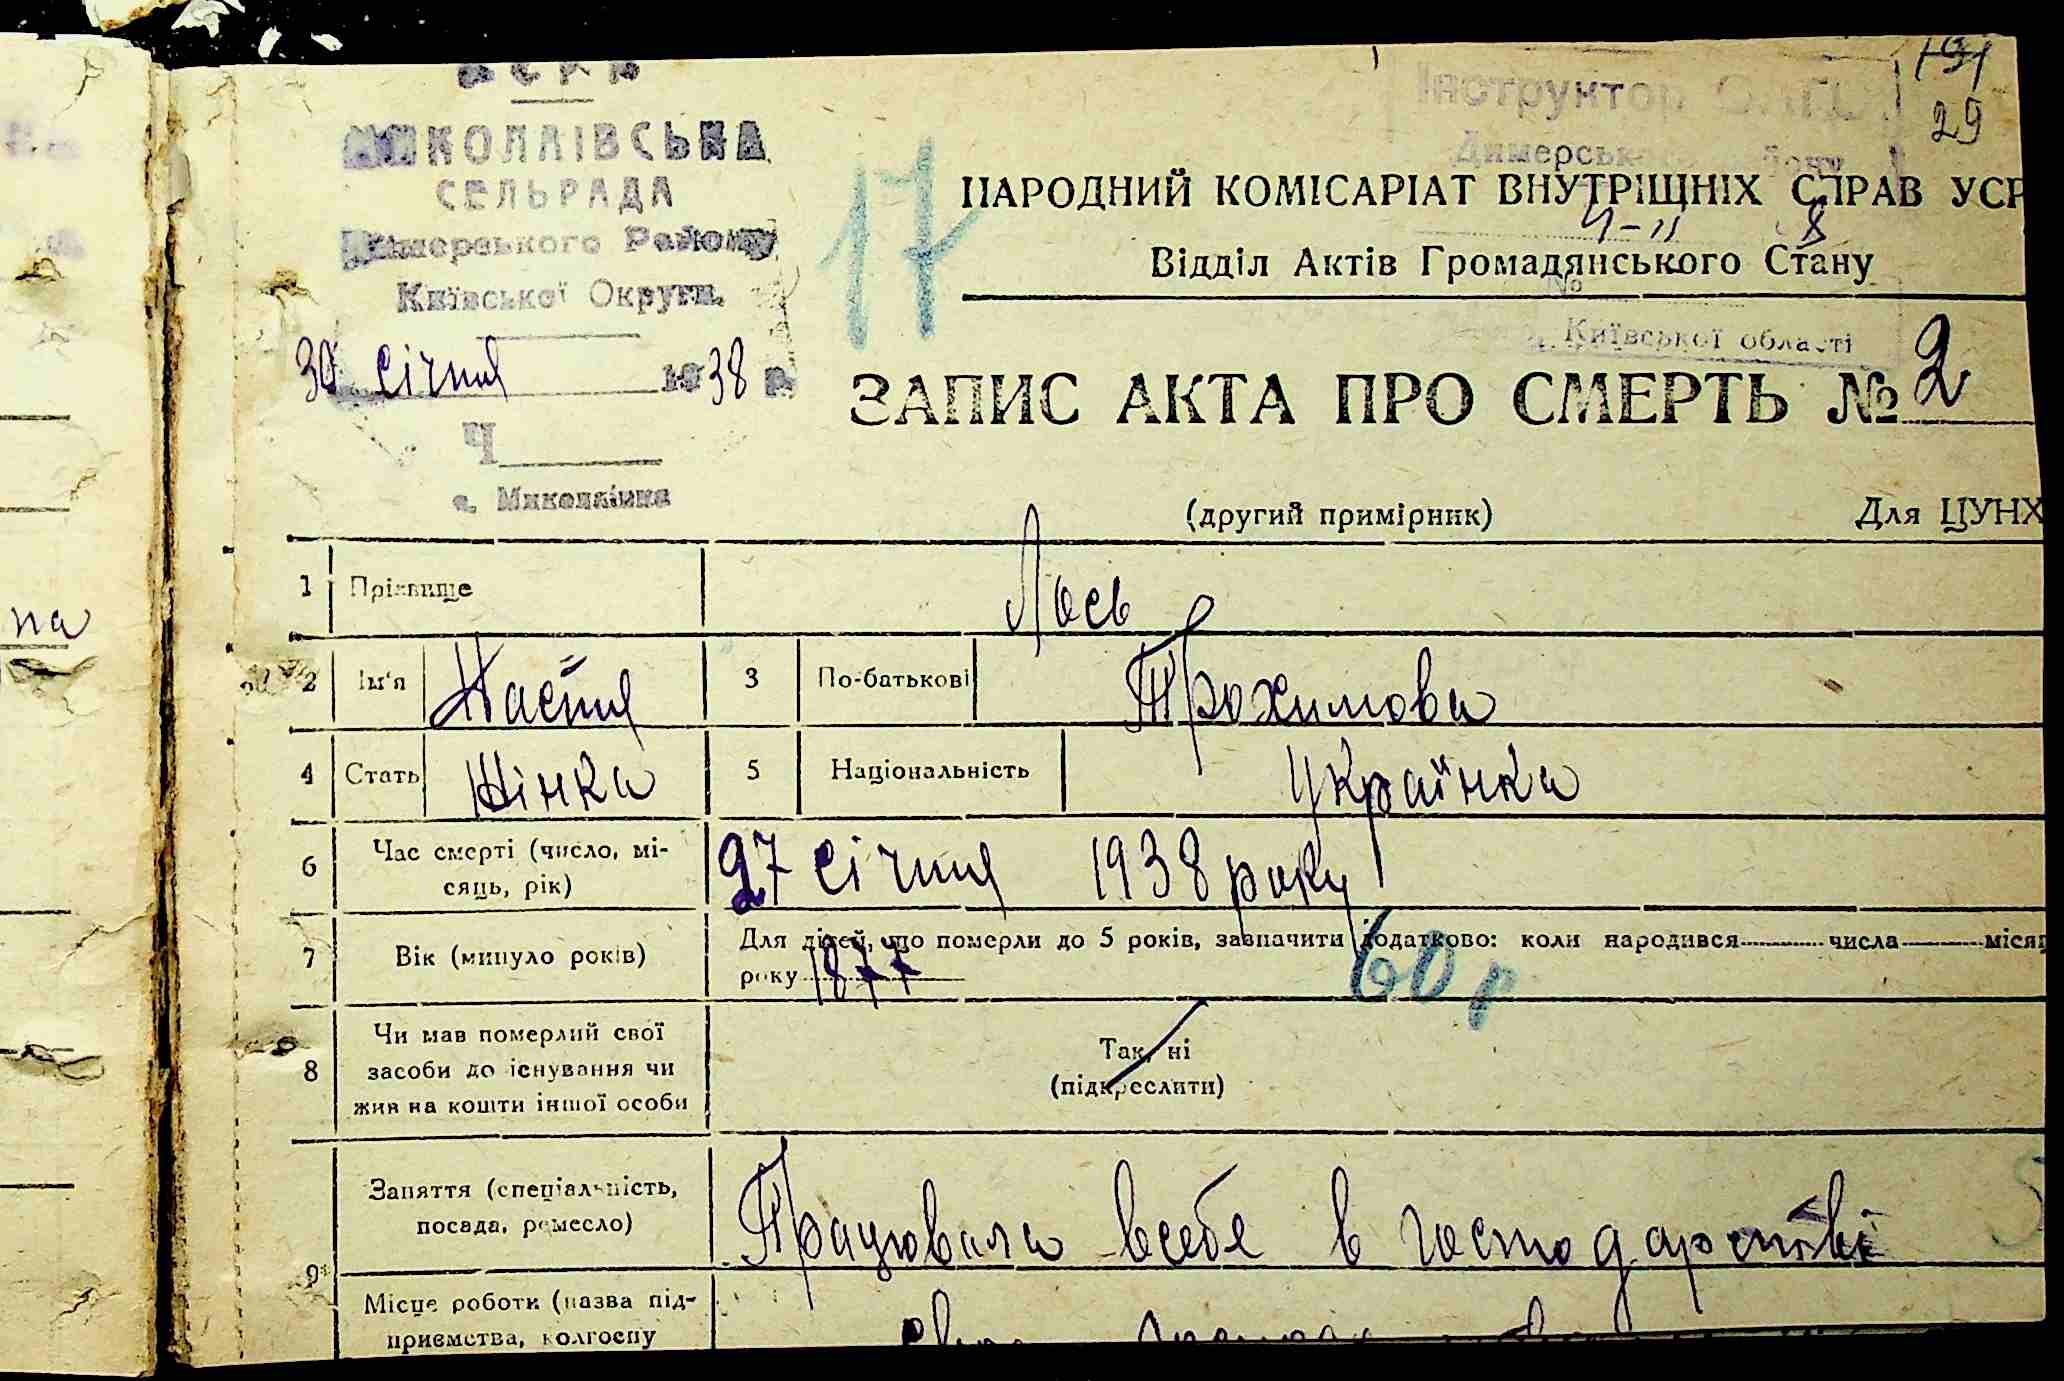 УСРР
МИКОЛАІВСЬКА
СЕЛЬРАДА
Димерського Району
Київської Округи.
30 січня 1938 р.
Ч
с. Миколаївка
17
191
29
Інструктор ОАГС
Димерського району
НАРОДНИЙ КОМІСАРІАТ ВНУТРІЩНІХ СПРАВ УСР
4-ІІ 38
Відділ Актів Громадянського Стану
№
Київської області
ЗАПИС АКТА ПРО СМЕРТЬ № 2
(другий примірник) Для ЦУНХ
1 Прізвище Лось
2 Ім'я Настя 3 По-батькові Трохимова
4 Стать Жінка 5 Національність Українка
6 Час смерті (число, мі-
сяць, рік) 27 січня 1938 року
7 Вік (минуло років) Для дітей, що померли до 5 років, зазначити додатково: коли народився числа місяц
року 1877 60 р
8 Чи мав померлий свої
засоби до існування чи
жив на кошти іншої особи
Так, ні
(підкреслити)
9 Заняття (спеціальність,
посада, ремесло) Працювала всебе в господарстві
Місце роботи (назва під-
приємства, колгоспу
на